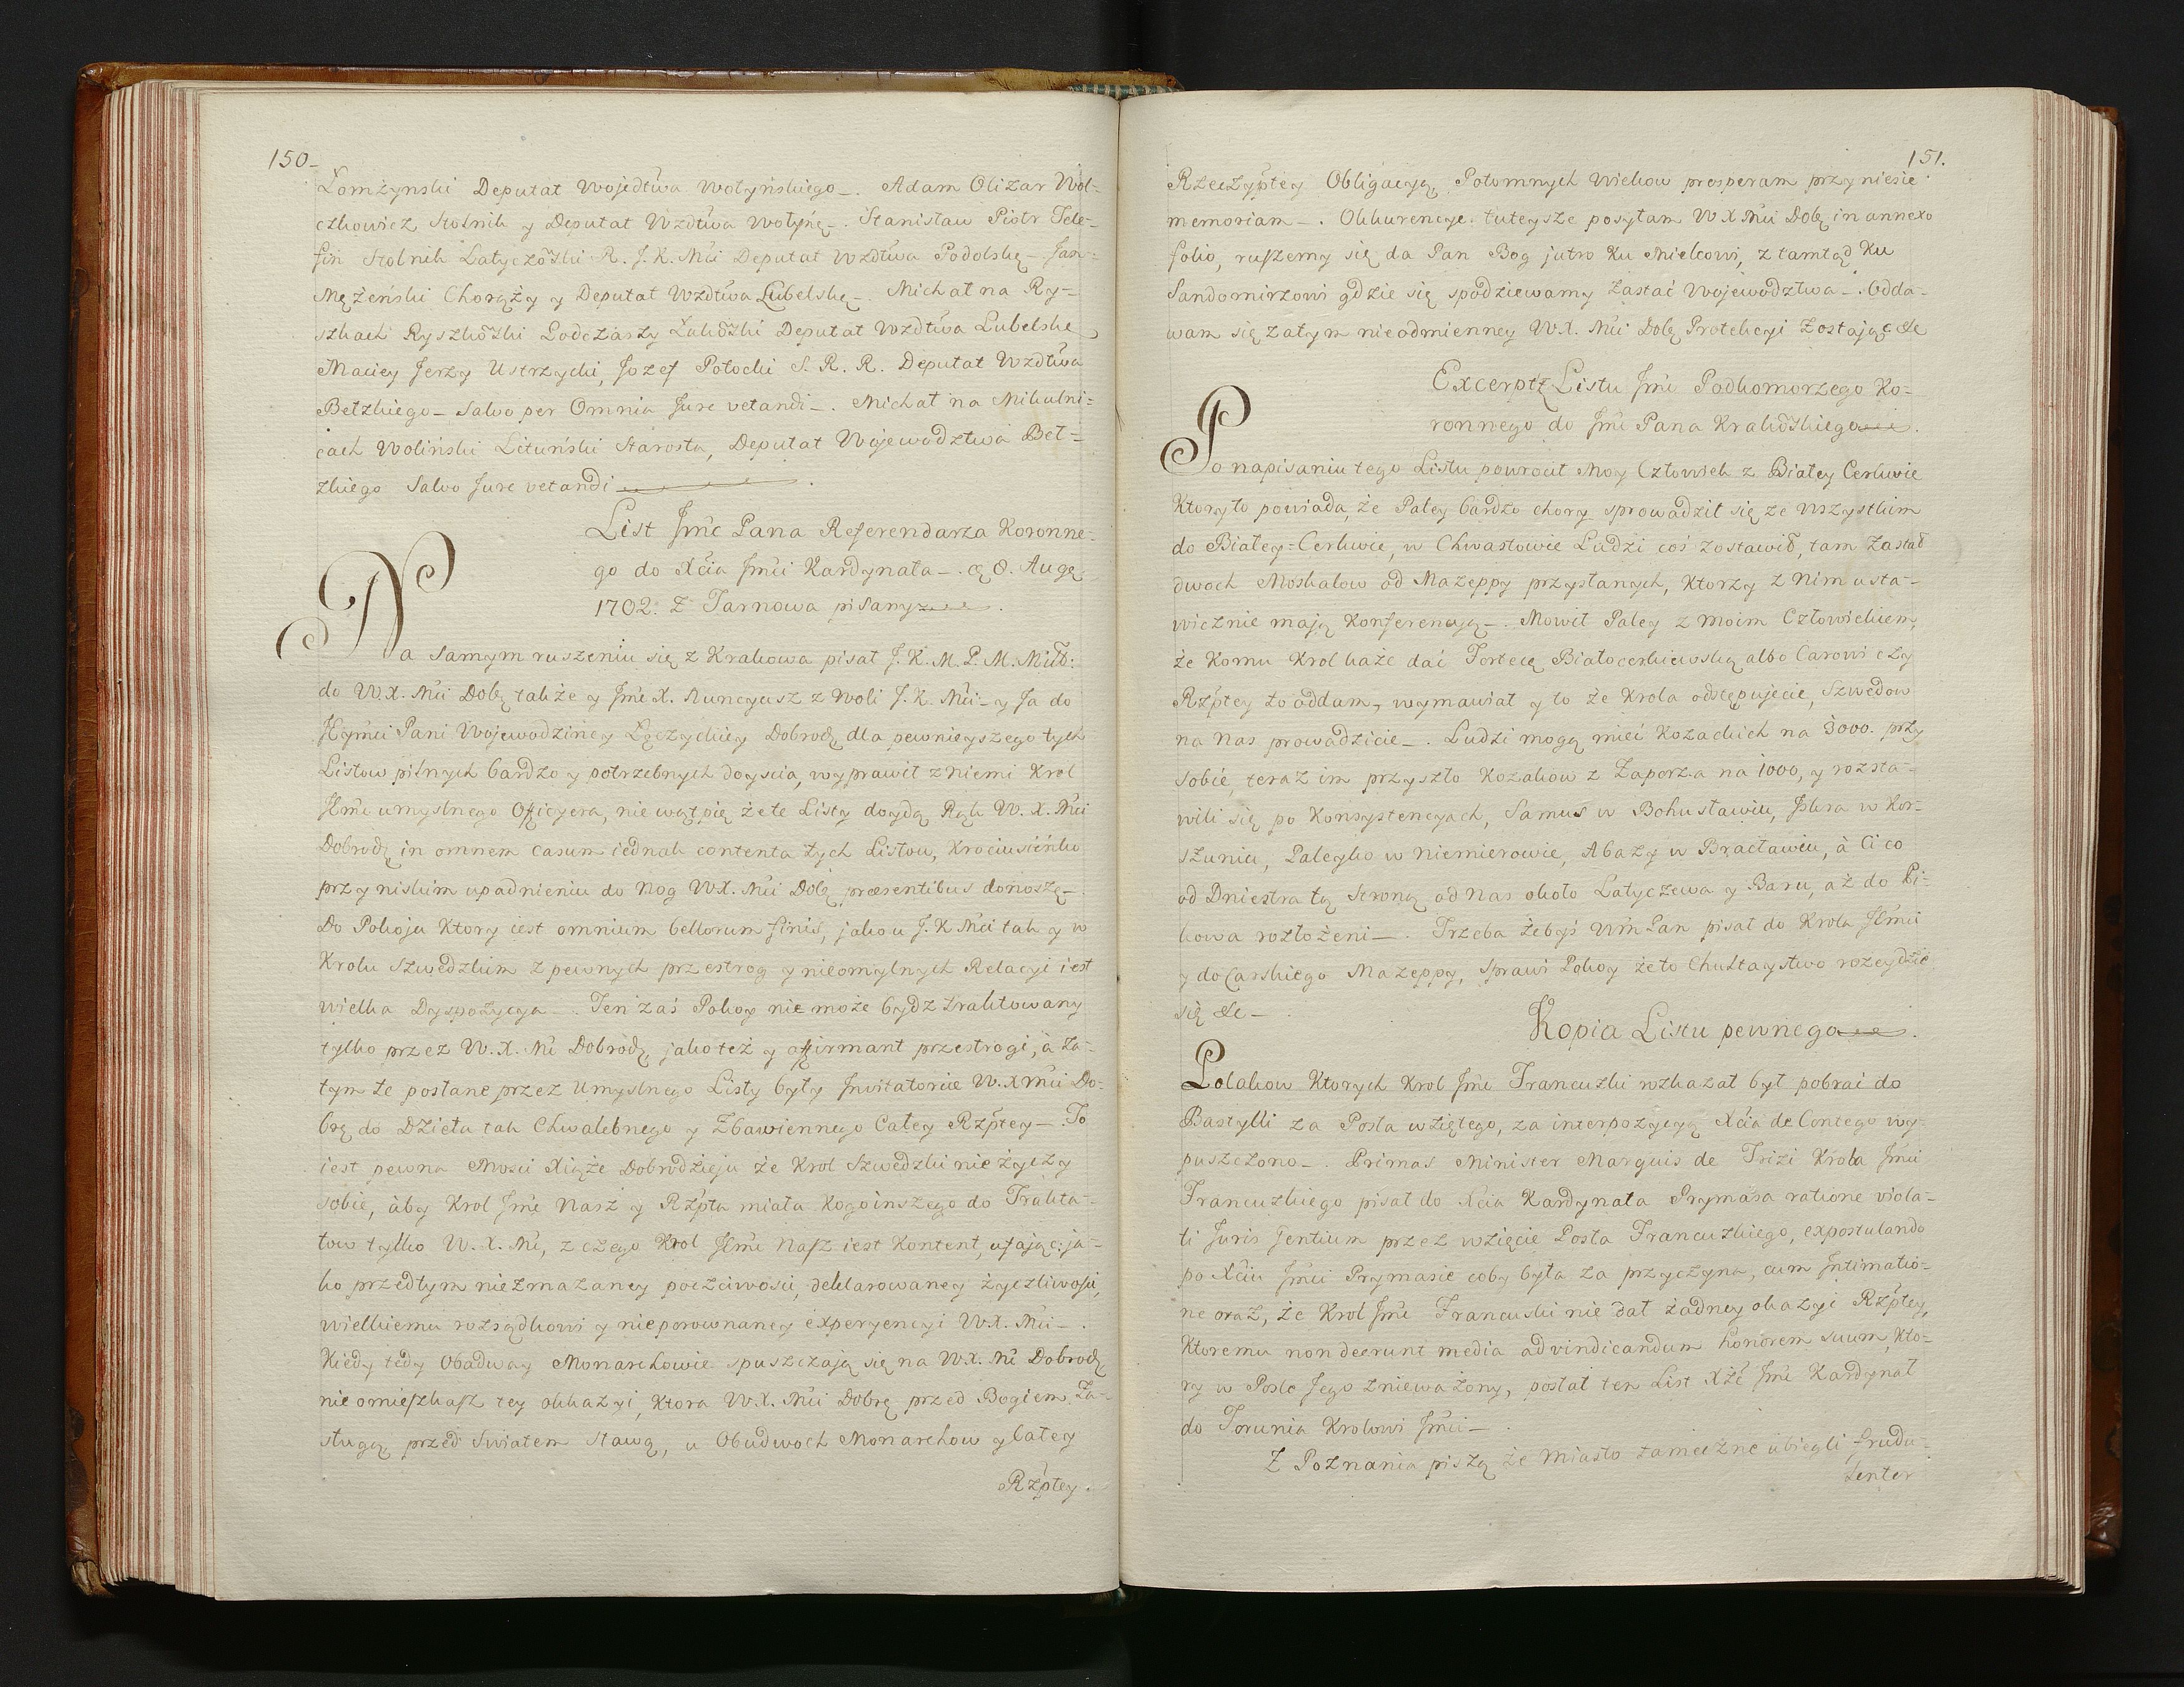 150-
Łomżynski Deputat Wojedtwa Wołyńskiego-. Adam Olizar Woł=
czkowicz Stolnik y Deputat Wzdtwa Wołyńę-. Stanisław Piotr Tele-
fin Stolnik Latyczõski R. J. K. Mći Deputat Wzdtwa Podolskę- Jan=
Mężeński Chorąży y Deputat Wzdtwa Lubelskę-. Michał na Ry=
szkach Ryszkõski Podczaszy Deputat Wzdtwa Lubelskę
Maciey Jerzy Ustrzycki, Jozef Potocki S. R. R. Deputat Wzdtwa
Bełzkiego- Salvo per Omnia Jure vetandi-. Michał na Mikulni=
cach Woliński Lituński Starosta, Deputat Wojewodztwa Beł=
zkiego Salvo Jure vetandi
List Jmć Pana Referendarza Koronne-
go do Xćia Jmći Kardynała-. 8. Augę
1702. Z Tarnowa pisany.
Na samym ruszeniu się z Krakowa pisał J. K. M. P. M. Miłt:
do W.X. Mći Dobę także y Jmć X. Nuncyusz z woli J. K. Mći- y Ja do
Jeymći Pani Wojewodziney Łęczyckiey Dobrodę dla pewnieyszego tych
Listow pilnych bardzo y potrzebnych doyscia, wyprawił z niemi Krol
Jlmć umyslnego Officyera, nie wątpię że te Listy doydą Rąk W. X. Mći
Dobrodę in omnem casum iednak contenta tych Listow, krociusieńko
przy niskim upadnieniu do nog WX. Mći Dobę præsentibus donoszę-.
Do Pokoju ktory iest omnium bellorum finis, jako u J. K Mći tak y w
Krolu Szwedzkim z pewnych przestrog y nieomylnych Relacyi iest
wielka Dyspozycya-. Ten zaś Pokoy nie może bydz traktowany
tylko przez W. X. Mć Dobrodę, jako też y affirmant przestrogi, à za-
tym te posłane przez Umyslnego Listy były Invitatoriæ W. X Mći Do-
brę do Dzieła tak Chwalebnego y Zbawiennego Całey Rzptey-. To
iest pewna Mosci Xiąże Dobrodzieju że Krol Szwedzki nie życzy
sobie, àby Krol Jmć Nasz y Rzpta miała kogo inszego do Trakta-
tow tylko W. X. Mć, z czego Krol Jlmć Nasz iest kontent, ufając ja-
ko przedtym niezmazaney poczciwosci, deklarowaney życzliwosci,
wielkiemu rozsądkowi y nieporownaney experyencyi W.X. Mći-.
Kiedy tedy Obadway Monarchowie spuszczają się na W.X. Mć Dobrodę
nie omieszkasz tey okkazyi, ktora W. X. Mći Dobrę przed Bogiem za-
sługą, przed Swiatem sławą, u Obudwoch Monarchow y całey
Rzptey.
151.
Rzeczyptey Obligacyą, Potomnych Wiekow prosperam przyniesie
memoriam-. Okkurencye tuteysze posyłam W X Mći Dobę in annexo
folio, ruszemy się da Pan Bog jutro ku Mielcowi, z tamtąd ku
Sandomirzowi gdzie się spodziewamy zastać Wojewodztwa-. Odda-
wam się zatym nieodmienney W. X. Mći Dobę Protekcyi zostając &c
Excerptę Listu Jmć Podkomorzego Ko-
ronnego do Jmć Pana Krakõskiego.
Po napisaniu tego Listu powrocił Moy Człowiek z Białey Cerkwie
Ktory to powiada, że Paley bardzo chory sprowadził się ze wszystkim
do Białey-Cerkwie, w Chwastowie Ludzi coś zostawił, tam zastał
dwoch Moskalow od Mazeppy przysłanych, ktorzy z nim usta-
wicznie mają konferencyą-. Mowił Paley z moim Człowiekiem,
że komu Krol każe dać Fortecę Białocerkiewską albo Carowi czy
Rzptey to oddam, wymawiał y to że Krola odstępujecie, Szwedow
na nas prowadzicie-. Ludzi mogą mieć Kozackich na 3000. przy
sobie, teraz im przyszło Kozakow z Zaporza na 1000, y rozsta-
wili się po Konsystencyach, Samuś w Bohusławiu, Iskra w Kor-
szuniu, Paleyko w Niemierowie, Abazy w Bracławiu, à Ci co
od Dniestra tą stroną od nas około Latyczewa y Baru, aż do Pi-
kowa rozłożeni-. Trzeba żebyś Wm Pan pisał do Krola Jlmći
y do Carskiego Mazeppy, sprawi Pokoy że to Chultaystwo rozeydzie
się &c-.
Kopia Listu pewnego.
Polakow Ktorych Krol Jmć Francuzki rozkazał był pobrać do
Bastylli za Posła wziętego, za interpozycyą Xćia de Contego wy-
puszczono-. Primas Minister Marquis de Trizi Krola Jmći
Francuzkiego pisał do Xćia Kardynała Prymasa ratione viola-
ti Juris Gentium przez wzięcie Posła Francuzkiego, expostulando
po Xćiu Jmći Prymasie coby była za przyczyna, cum Intimatio-
ne oraz, że Krol Jmć Francuski nie dał żadney okazyi Rzptey,
Ktoremu non deerunt media ad vindicandum honorem suum, kto-
ry w Posle Jego znieważony, posłał ten List Xżć Jmć Kardynał
do Torunia Krolowi Jmći-.
Z Poznania piszą że Miasto tameczne ubiegli fradu-
lenter